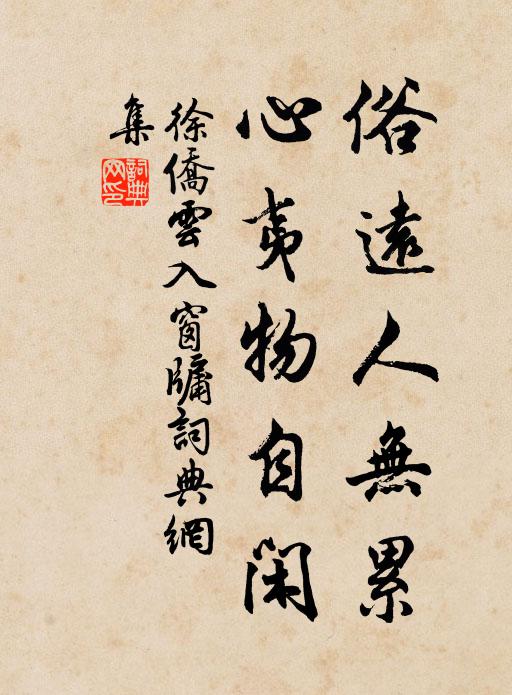 俗遠人無累
心夷物自閑
徐僑雲入窗牖詞典網
集
詞典网印